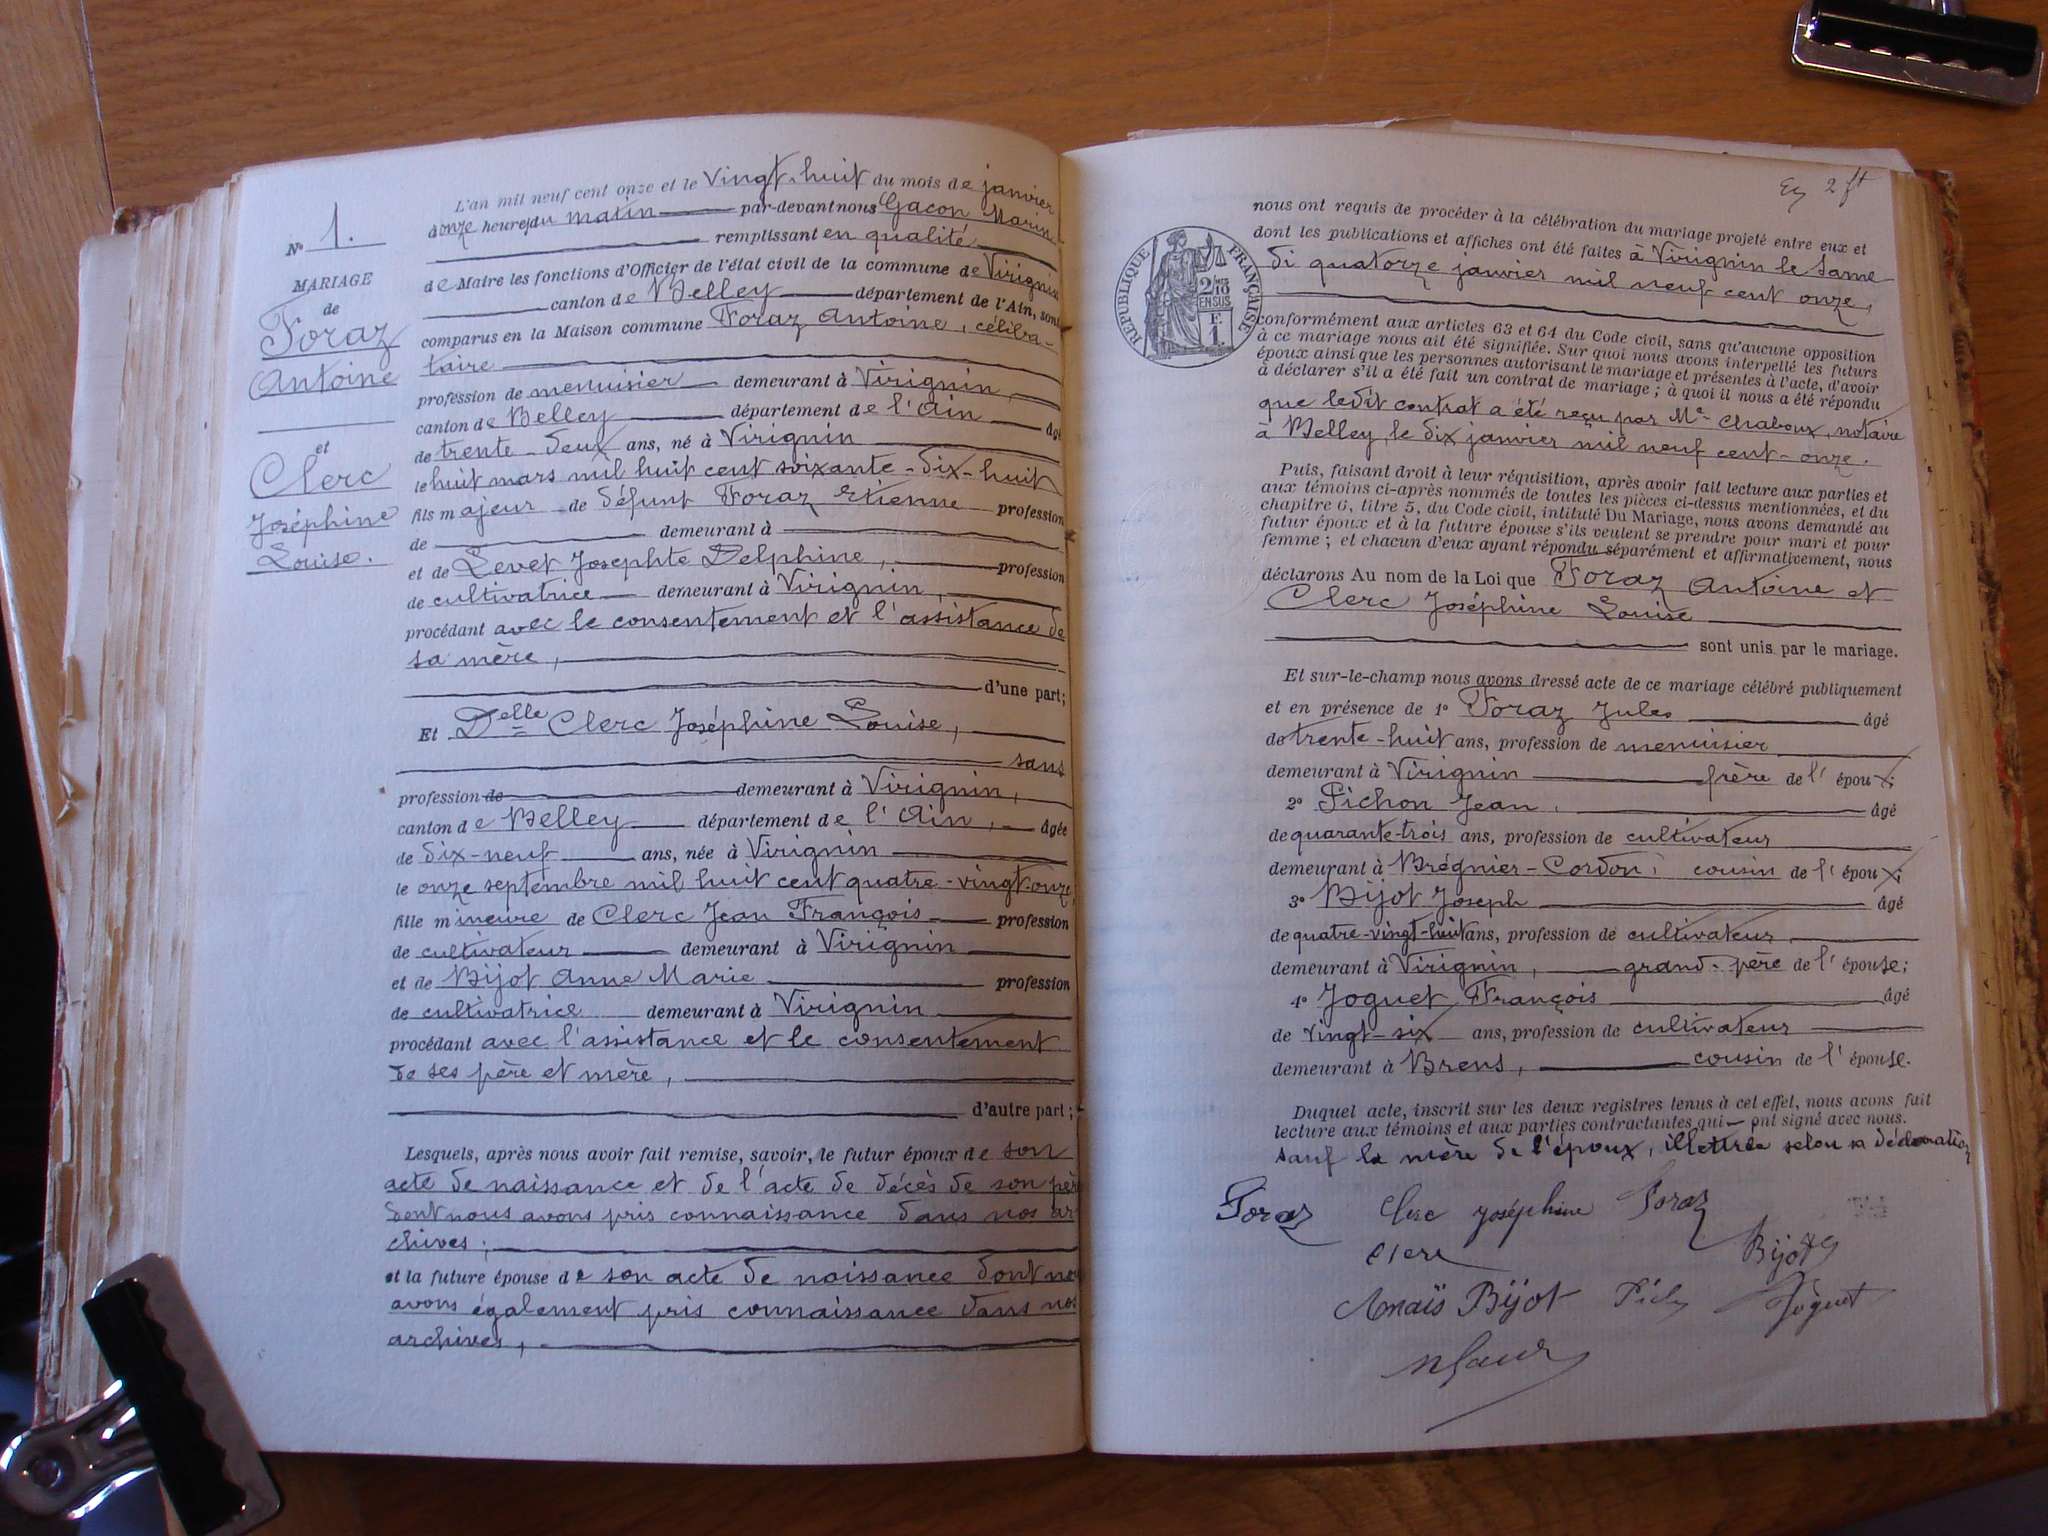 L'an mil neuf cent onze et le vingt-huit du mois de janvier
à onze heures du matin par-devant nous Gacon Marin
remplissant en qualité
de Maire les fonctions d'Officier de l'état civil de la commune de Virignin
canton de Belley département de l'Ain, sont
comparus en la Maison commune Foraz Antoine, céliba-
taire
profession de menuisier demeurant à Virignin,
canton de Belley département de l'Ain âgé
de trente-deux ans, né à Virignin
le huit mars mil huit cent soixante-dix-huit
fils majeur de défunt Foraz Etienne profession
de demeurant à
et de Levet Josephte Delphine, profession
de cultivatrice demeurant à Virignin,
procédant avec le consentement et l'assistance de
sa mère,
d'une part;
Et Delle Clerc Joséphine Louise,
sans
profession de demeurant à Virignin,
canton de Belley département de l'Ain, âgée
de dix-neuf ans, née à Virignin
le onze septembre mil huit cent quatre-vingt-onze
fille mineure de Clerc Jean François profession
de cultivateur demeurant à Virignin
et de Bijot Anne Marie profession
de cultivatrice demeurant à Virignin
procédant avec l'assistance et le consentement
de ses père et mère,
d'autre part;
Lesquels, après nous avoir fait remise, savoir, le futur époux de son
acte de naissance et de l'acte de décès de son père
dont nous avons pris connaissance dans nos ar
chives;
et la future épouse de son acte de naissance dont nous
avons également pris connaissance dans nos
archives,
N° 1.
MARIAGE
de
Foraz
Antoine
et
Clerc
Joséphine
Louise.
2 ft
nous ont requis de procéder à la célébration du mariage projeté entre eux et
dont les publications et affiches ont été faites à Virignin le same
di quatorze janvier mil neuf cent onze,
conformément aux articles 63 et 64 du Code civil, sans qu'aucune opposition
à ce mariage nous ait été signifiée. Sur quoi nous avons interpellé les futurs
époux ainsi que les personnes autorisant le mariage et présentes à l'acte, d'avoir
à déclarer s'il a été fait un contrat de mariage; à quoi il nous a été répondu
que ledit contrat a été reçu par Me Chaboux, notaire
à Belley, le dix janvier mil neuf cent-onze.
Puis, faisant droit à leur réquisition, après avoir fait lecture aux parties et
aux témoins ci-après nommés de toutes les pièces ci-dessus mentionnées, et du
chapitre 6, titre 5, du Code civil, intitulé Du Mariage, nous avons demandé au
futur époux et à la future épouse s'ils veulent se prendre pour mari et pour
femme; et chacun d'eux ayant répondu séparément et affirmativement, nous
déclarons Au nom de la Loi que Foraz Antoine et
Clerc Joséphine Louise
sont unis par le mariage.
Et sur-le-champ nous avons dressé acte de ce mariage célébré publiquement
et en présence de 1° Foraz Jules âgé
de trente-huit ans, profession de menuisier
demeurant à Virignin frère de l'époux;
2° Pichon Jean, âgé
de quarante-trois ans, profession de cultivateur
demeurant à Brégnier-Cordon; cousin de l'époux;
3° Bijot Joseph âgé
de quatre-vingt-huit ans, profession de cultivateur,
demeurant à Virignin, grand-père de l'épouse;
4° Joguet François âgé
de vingt-six ans, profession de cultivateur
demeurant à Brens, cousin de l'épouse.
Duquel acte, inscrit sur les deux registres tenus à cet effet, nous avons fait
lecture aux témoins et aux parties contractantes qui ont signé avec nous.
sauf la mère de l'époux, illettrée selon sa déclaration
Foraz Clerc Joséphine Foraz
Clerc Bijot
Anaïs Bijot Joguet
RÉPUBLIQUE FRANÇAISE
2/10
EN SUS
F.
1.